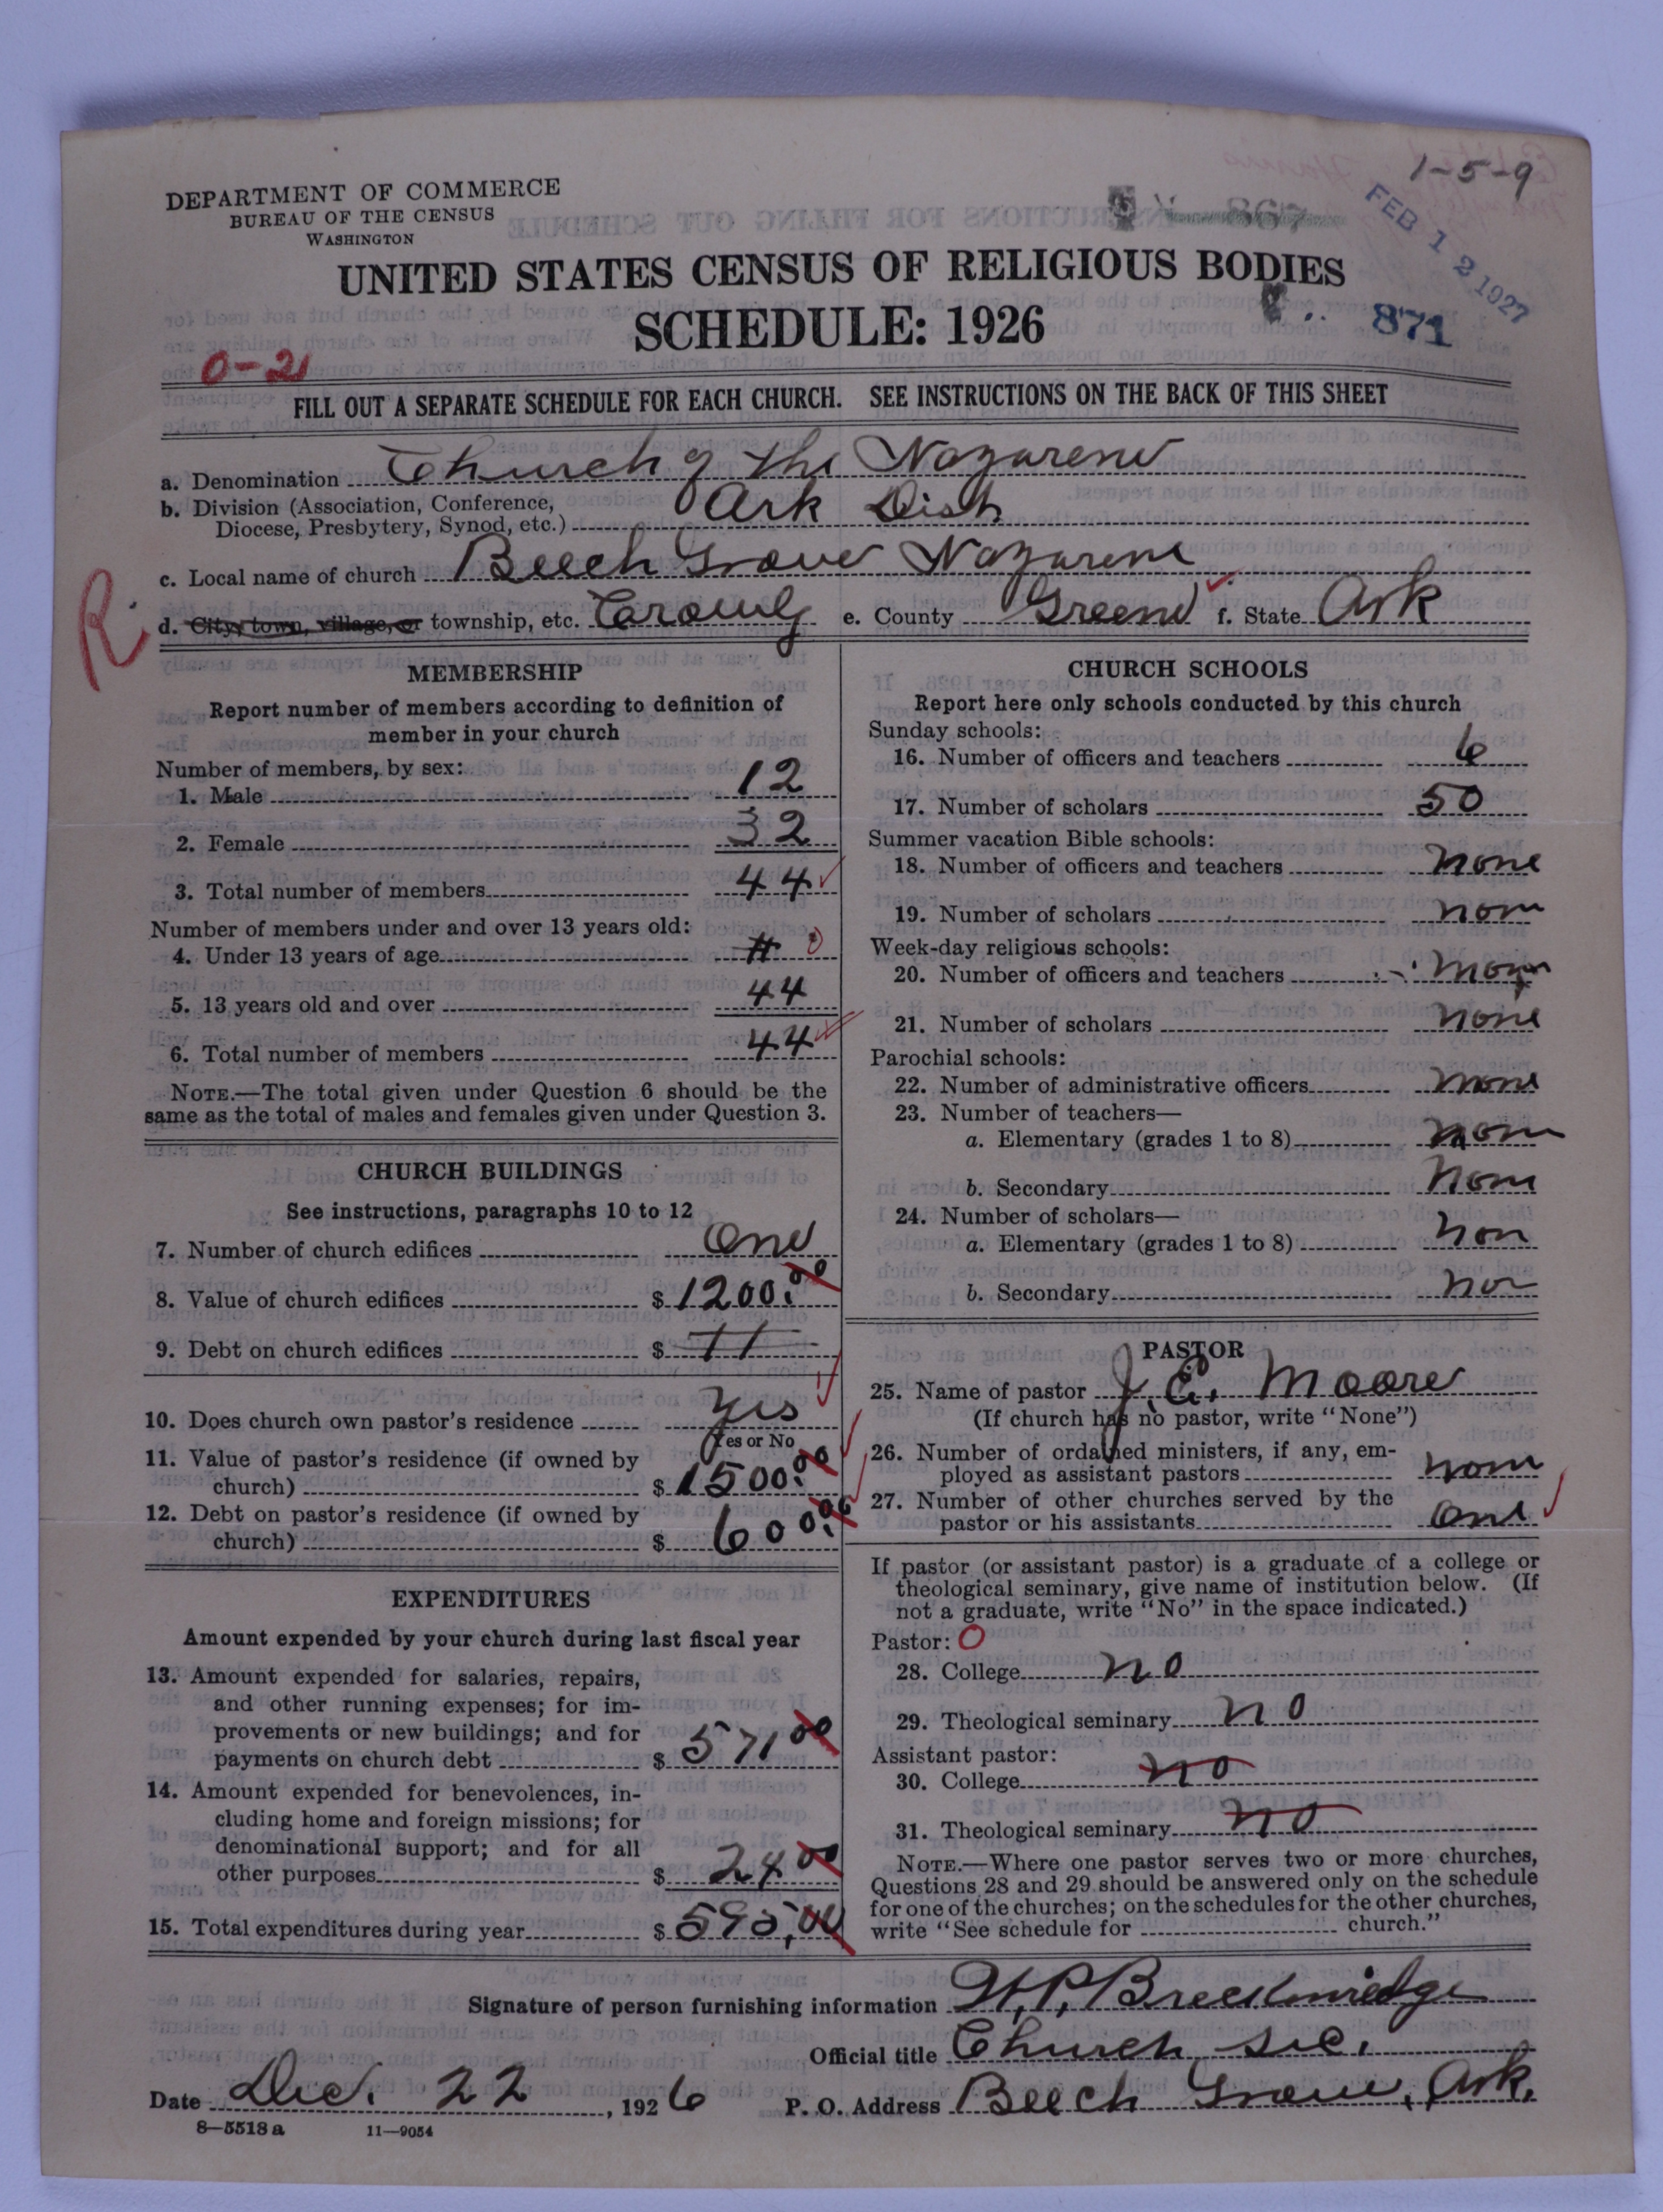 1-5-9
DEPARTMENT OF COMMERCE
BUREAU OF THE CENSUS
WASHINGTON
867
FEB 12 1927
UNITED STATES CENSUS OF RELIGIOUS BODIES
SCHEDULE: 1926
871
0-21
FILL OUT A SEPARATE SCHEDULE FOR EACH CHURCH. SEE INSTRUCTIONS ON THE BACK OF THIS SHEET
a. Denomination Church of the Nazarene
b. Division (Association, Conference, Diocese, Presbytery, Synod, etc.) Ark Dist
c. Local name of church Beech Grove Nazarene
R.
d. City, town, village, or township, etc. Crowly e. County Greene f. State Ark
MEMBERSHIP
Report number of members according to definition of
member in your church
Number of members, by sex:
1. Male 12
2. Female 32
3. Total number of members 44
Number of members under and over 13 years old:
4. Under 13 years of age 0
5. 13 years old and over 44
6. Total number of members 44
NOTE.—The total given under Question 6 should be the
same as the total of males and females given under Question 3.
CHURCH BUILDINGS
See instructions, paragraphs 10 to 12
7. Number of church edifices One
8. Value of church edifices $ 1200.00
9. Debt on church edifices $
10. Does church own pastor's residence Yes
Yes or No
11. Value of pastor's residence (if owned by
church) $ 1500.00
12. Debt on pastor's residence (if owned by
church) $ 600.00
EXPENDITURES
Amount expended by your church during last fiscal year
13. Amount expended for salaries, repairs,
and other running expenses; for im-
provements or new buildings; and for
payments on church debt $ 571 00
14. Amount expended for benevolences, in-
cluding home and foreign missions; for
denominational support; and for all
other purposes $ 24 00
15. Total expenditures during year $ 595,00
CHURCH SCHOOLS
Report here only schools conducted by this church
Sunday schools:
16. Number of officers and teachers 6
17. Number of scholars 50
Summer vacation Bible schools:
18. Number of officers and teachers none
19. Number of scholars none
Week-day religious schools:
20. Number of officers and teachers none
21. Number of scholars none
Parochial schools:
22. Number of administrative officers none
23. Number of teachers—
a. Elementary (grades 1 to 8) none
b. Secondary none
24. Number of scholars—
a. Elementary (grades 1 to 8) non
b. Secondary non
PASTOR
25. Name of pastor J. E. Moore
(If church has no pastor, write "None")
26. Number of ordained ministers, if any, em-
ployed as assistant pastors none
27. Number of other churches served by the
pastor or his assistants One
If pastor (or assistant pastor) is a graduate of a college or
theological seminary, give name of institution below. (If
not a graduate, write "No" in the space indicated.)
Pastor: O
28. College no
29. Theological seminary no
Assistant pastor:
30. College no
31. Theological seminary no
NOTE.—Where one pastor serves two or more churches,
Questions 28 and 29 should be answered only on the schedule
for one of the churches; on the schedules for the other churches,
write "See schedule for church."
Signature of person furnishing information H. P. Breckenridge
Official title Church sec.
Date Dec. 22, 1926 P. O. Address Beech Grove, Ark.
8—5518 a 11—9054